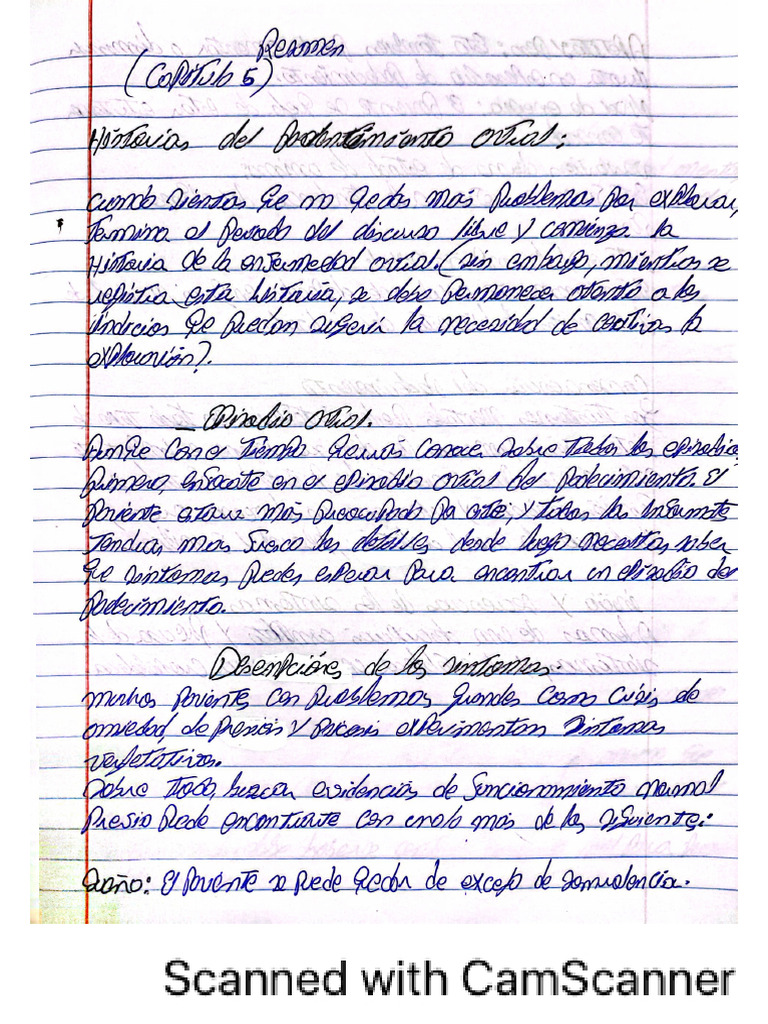 Resumen
(Capitulo 5)
Historias del Padecimiento actual:
cuando sientas que no quedas más Problemas por explorar,
Termina el Periodo del discurso libre y comienza la
Historia de la enfermedad actual. (sin embargo, mientras se
registra esta historia, se debe Permanecer atento a los
indicios que puedan sugerir la necesidad de la
exploración).
_ Episodio actual.
Aunque con el Tiempo querrás conocer sobre todos los episodios
Primero, enfocate en el episodio actual del Padecimiento. El
Paciente estara más Preocupado Por este, y todos los
Tendras mas fresco los detalles desde luego necesitas saber
que sintomas Puedes esperar Para encontrar un episodio de
Padecimiento.
Descripciónes de los sintomas:
muchos Paciente con Problemas grandes como crisis de
ansiedad, de Presión y Psicosis experimentan sintomas
vegetativos.
sobre todo, buscar evidencias de funcionamiento normal
Previo Puede encontrarte con uno/o más de los siguientes:
El Paciente se Puede quedar de exceso de somnolencia.
Scanned with CamScanner